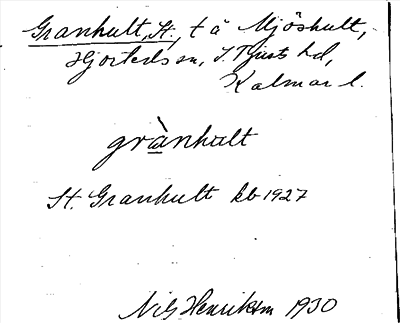 Granhult, St., t å Mjöshult,
Hjorteds sn, S. Tjust hd,
Kalmar l.
grànhult
St. Granhult kb 1927
Nils Henriksson 1930